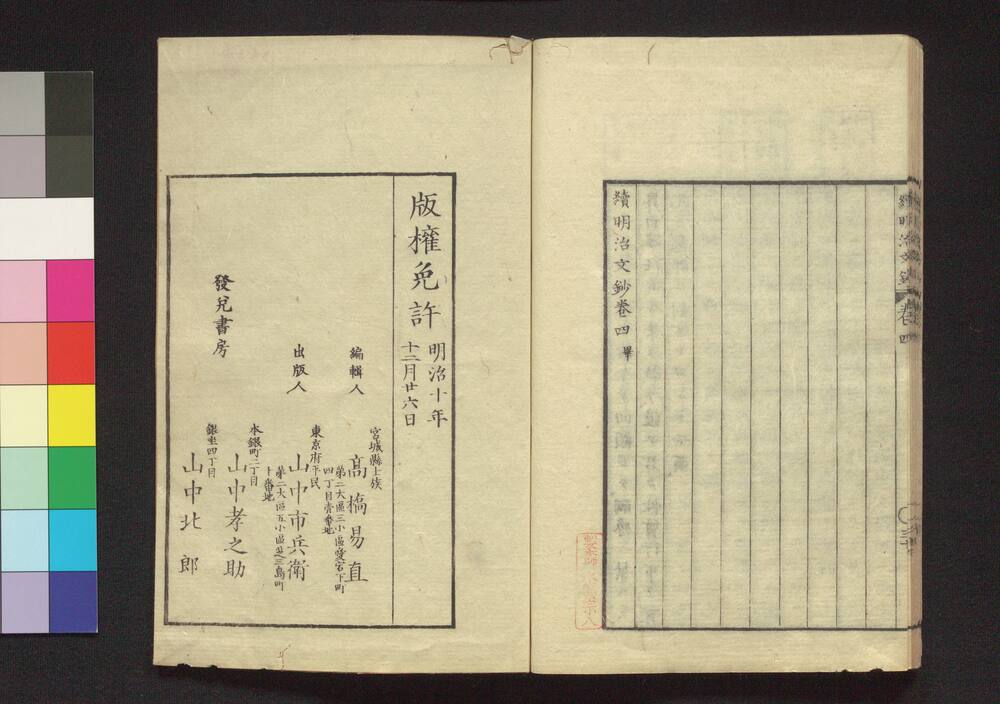 續明治文鈔卷四
續明治文鈔卷四畢
版權免許
明治十年
十二月廿六日
編輯人
宮城縣士族
高橋易直
第二大區三小區愛宕下町
四丁目壹番地
出版人
東京府平民
山中市兵衛
第二大區五小區芝三島町
十番地
發兌書房
本銀町二丁目
山中孝之助
銀座四丁目
山中北郎